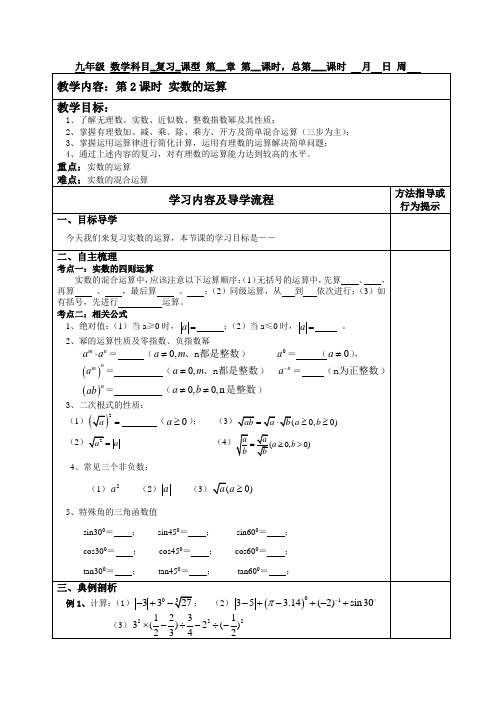 九年级 数学科目_复习_课型 第__章 第__课时，总第___课时 月 日 周
教学内容：第2课时 实数的运算
教学目标：
1、了解无理数、实数、近似数、整数指数幂及其性质；
2、掌握有理数加、减、乘、除、乘方、开方及简单混合运算（三步为主）；
3、掌握运用运算律进行简化计算，运用有理数的运算解决简单问题；
4、通过上述内容的复习，对有理数的运算能力达到较高的水平。
重点：实数的运算
难点：实数的混合运算
学习内容及导学流程
方法指导或行为提示
一、目标导学
今天我们来复习实数的运算，本节课的学习目标是－－
二、自主梳理
考点一：实数的四则运算
实数的混合运算中，应该注意以下运算顺序：（1）无括号的运算中，先算 、 ，
再算 、 ，最后算 、 ；（2）同级运算，从 到 依次进行；（3）如
有括号，先进行 运算。
考点二：相关公式
1、绝对值：（1）当 a≥0 时，|a|= ；（2）当 a≤0 时，|a|= 。
2、幂的运算性质及零指数、负指数幂
a^m·a^n= （a≠0,m、n都是整数） a^0= （a≠0），
(a^m)^n= （a≠0,m、n都是整数） a^{-n}= （n为正整数）
(ab)^n= （a≠0,b≠0,n是整数）
3、二次根式的性质：
（1）(√a)^2= （a≥0）； （3）√ab=√a·√b(a≥0,b≥0)
（2）√a^2=|a| （4）√(a/b)=√a/√b(a≥0,b>0)
4、常见三个非负数：
（1）a^2 （2）|a| （3）√a(a≥0)
5、特殊角的三角函数值
sin30⁰= ； sin45⁰= ； sin60⁰= ；
cos30⁰= ； cos45⁰= ； cos60⁰= ；
tan30⁰= ； tan45⁰= ； tan60⁰= ；
三、典例剖析
例1、计算：（1）|-3|+3^0-∛27； （2）|3-5|+(π-3.14)^0+(-2)^{-1}+sin30°
（3）3^2×(1/2-2/3)÷3/4-2^2÷(-1/2)^2